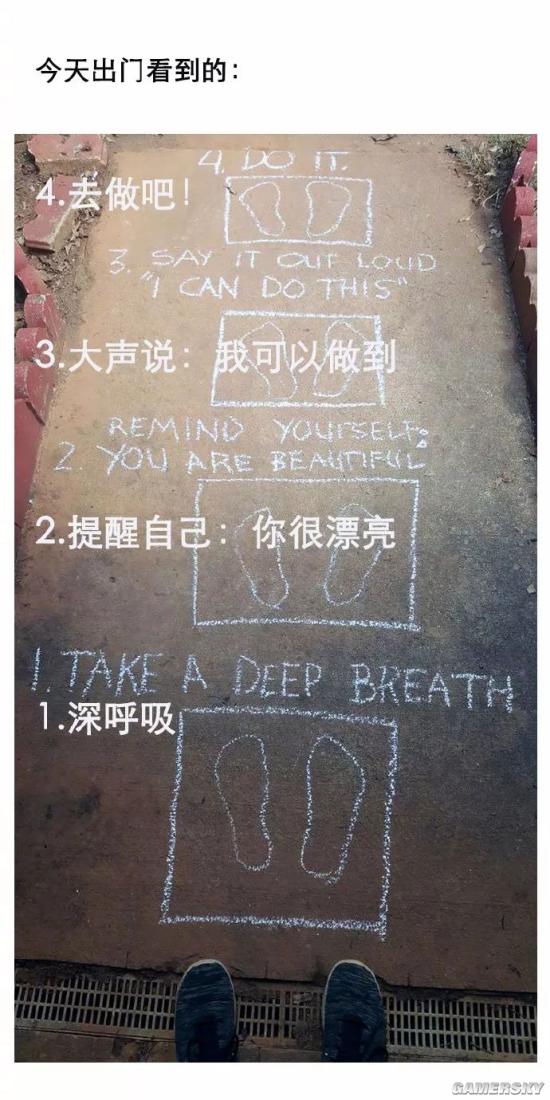 今天出门看到的：
4. DO IT.
4.去做吧！
3. SAY IT OUT LOUD
"I CAN DO THIS"
3.大声说：我可以做到
REMIND YOURSELF:
2. YOU ARE BEAUTIFUL
2.提醒自己：你很漂亮
1. TAKE A DEEP BREATH
1.深呼吸
GAMERSKY